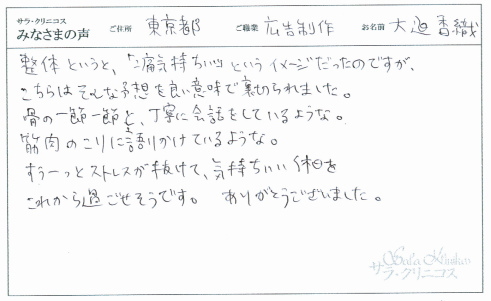 サラ・クリニコス
みなさまの声 ご住所 東京都 ご職業 広告制作 お名前 大迫 香織
整体というと、「痛気持ちいい」というイメージだったのですが、
こちらはそんな予想を良い意味で裏切られました。
骨の一節一節と、丁寧に会話をしているような。
筋肉のこりに語りかけているような。
すぅーっとストレスが抜けて、気持ちいい休日を
これから過ごせそうです。 ありがとうございました。
Sala Klinikos
サラ・クリニコス